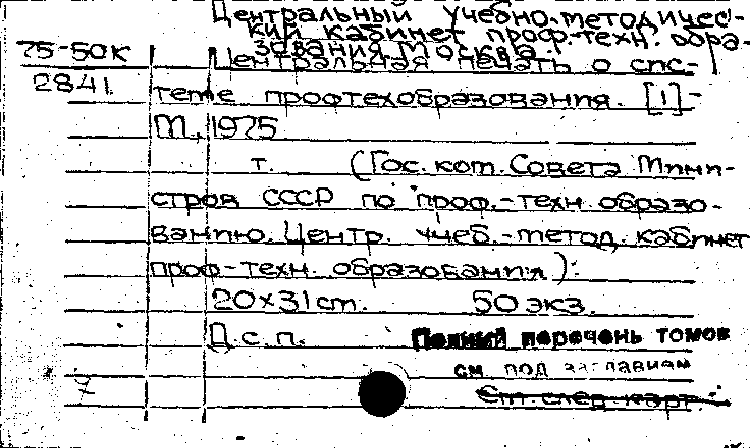 Центральный учебно-методичес-
кий кабинет проф.-техн. обра-
зования. Москва.
75-50к
Центральная печать о сис-
2841
теме профтехобразования. [1]-
М., 1975
т. (Гос. ком. Совета Мини-
стров СССР по проф.-техн. образо-
ванию. Центр. учеб.-метод. кабинет
проф-техн. образования).
20×31 cm. 50 экз.
Д.с.п.
Полный перечень томов
см под заглавием
См. след. карт.